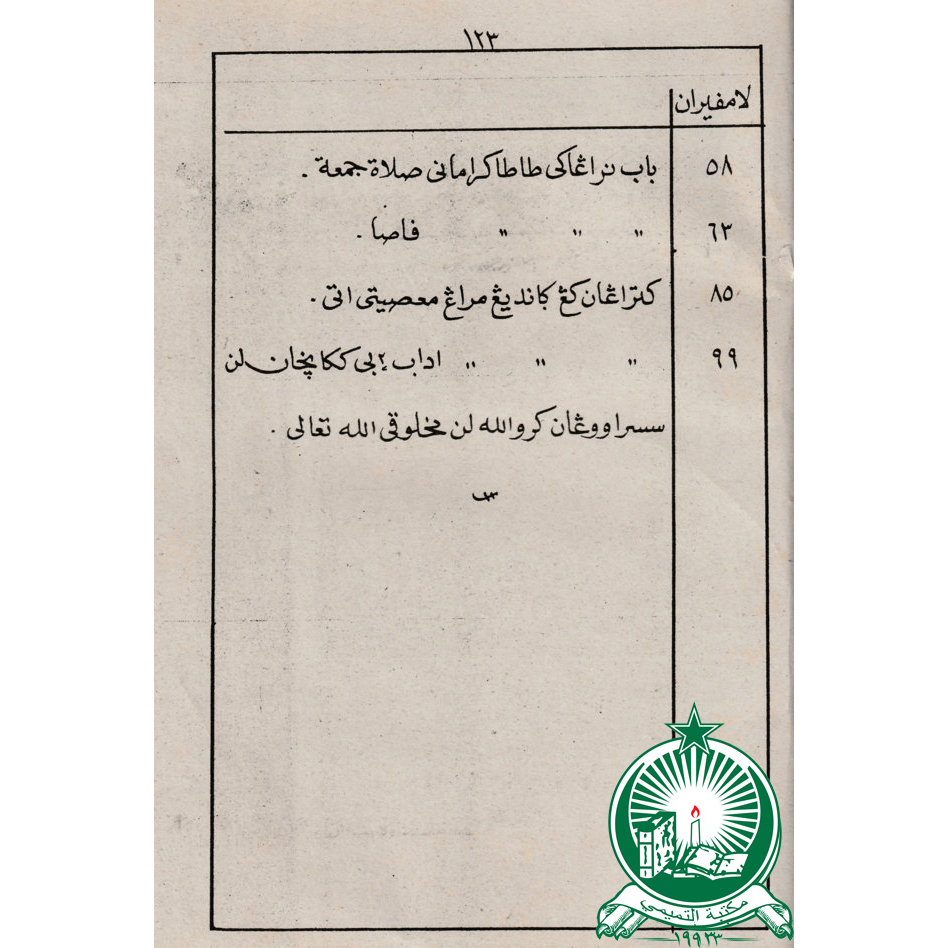 ١٢٣
لامفيران
٥٨ باب نراڠاكى طاطاكرامانى صلاة جمعة .
٦٣ " " " فاصا .
٨٥ كتراڠان كڠ كانديڠ مراڠ معصيتى اتى .
٩٩ " " " اداب ٢ بى ككانچان لن
سسراووڠان كرو الله لن مخلوقى الله تعالى .
مكتبة التميمي
١٩٩٣٣